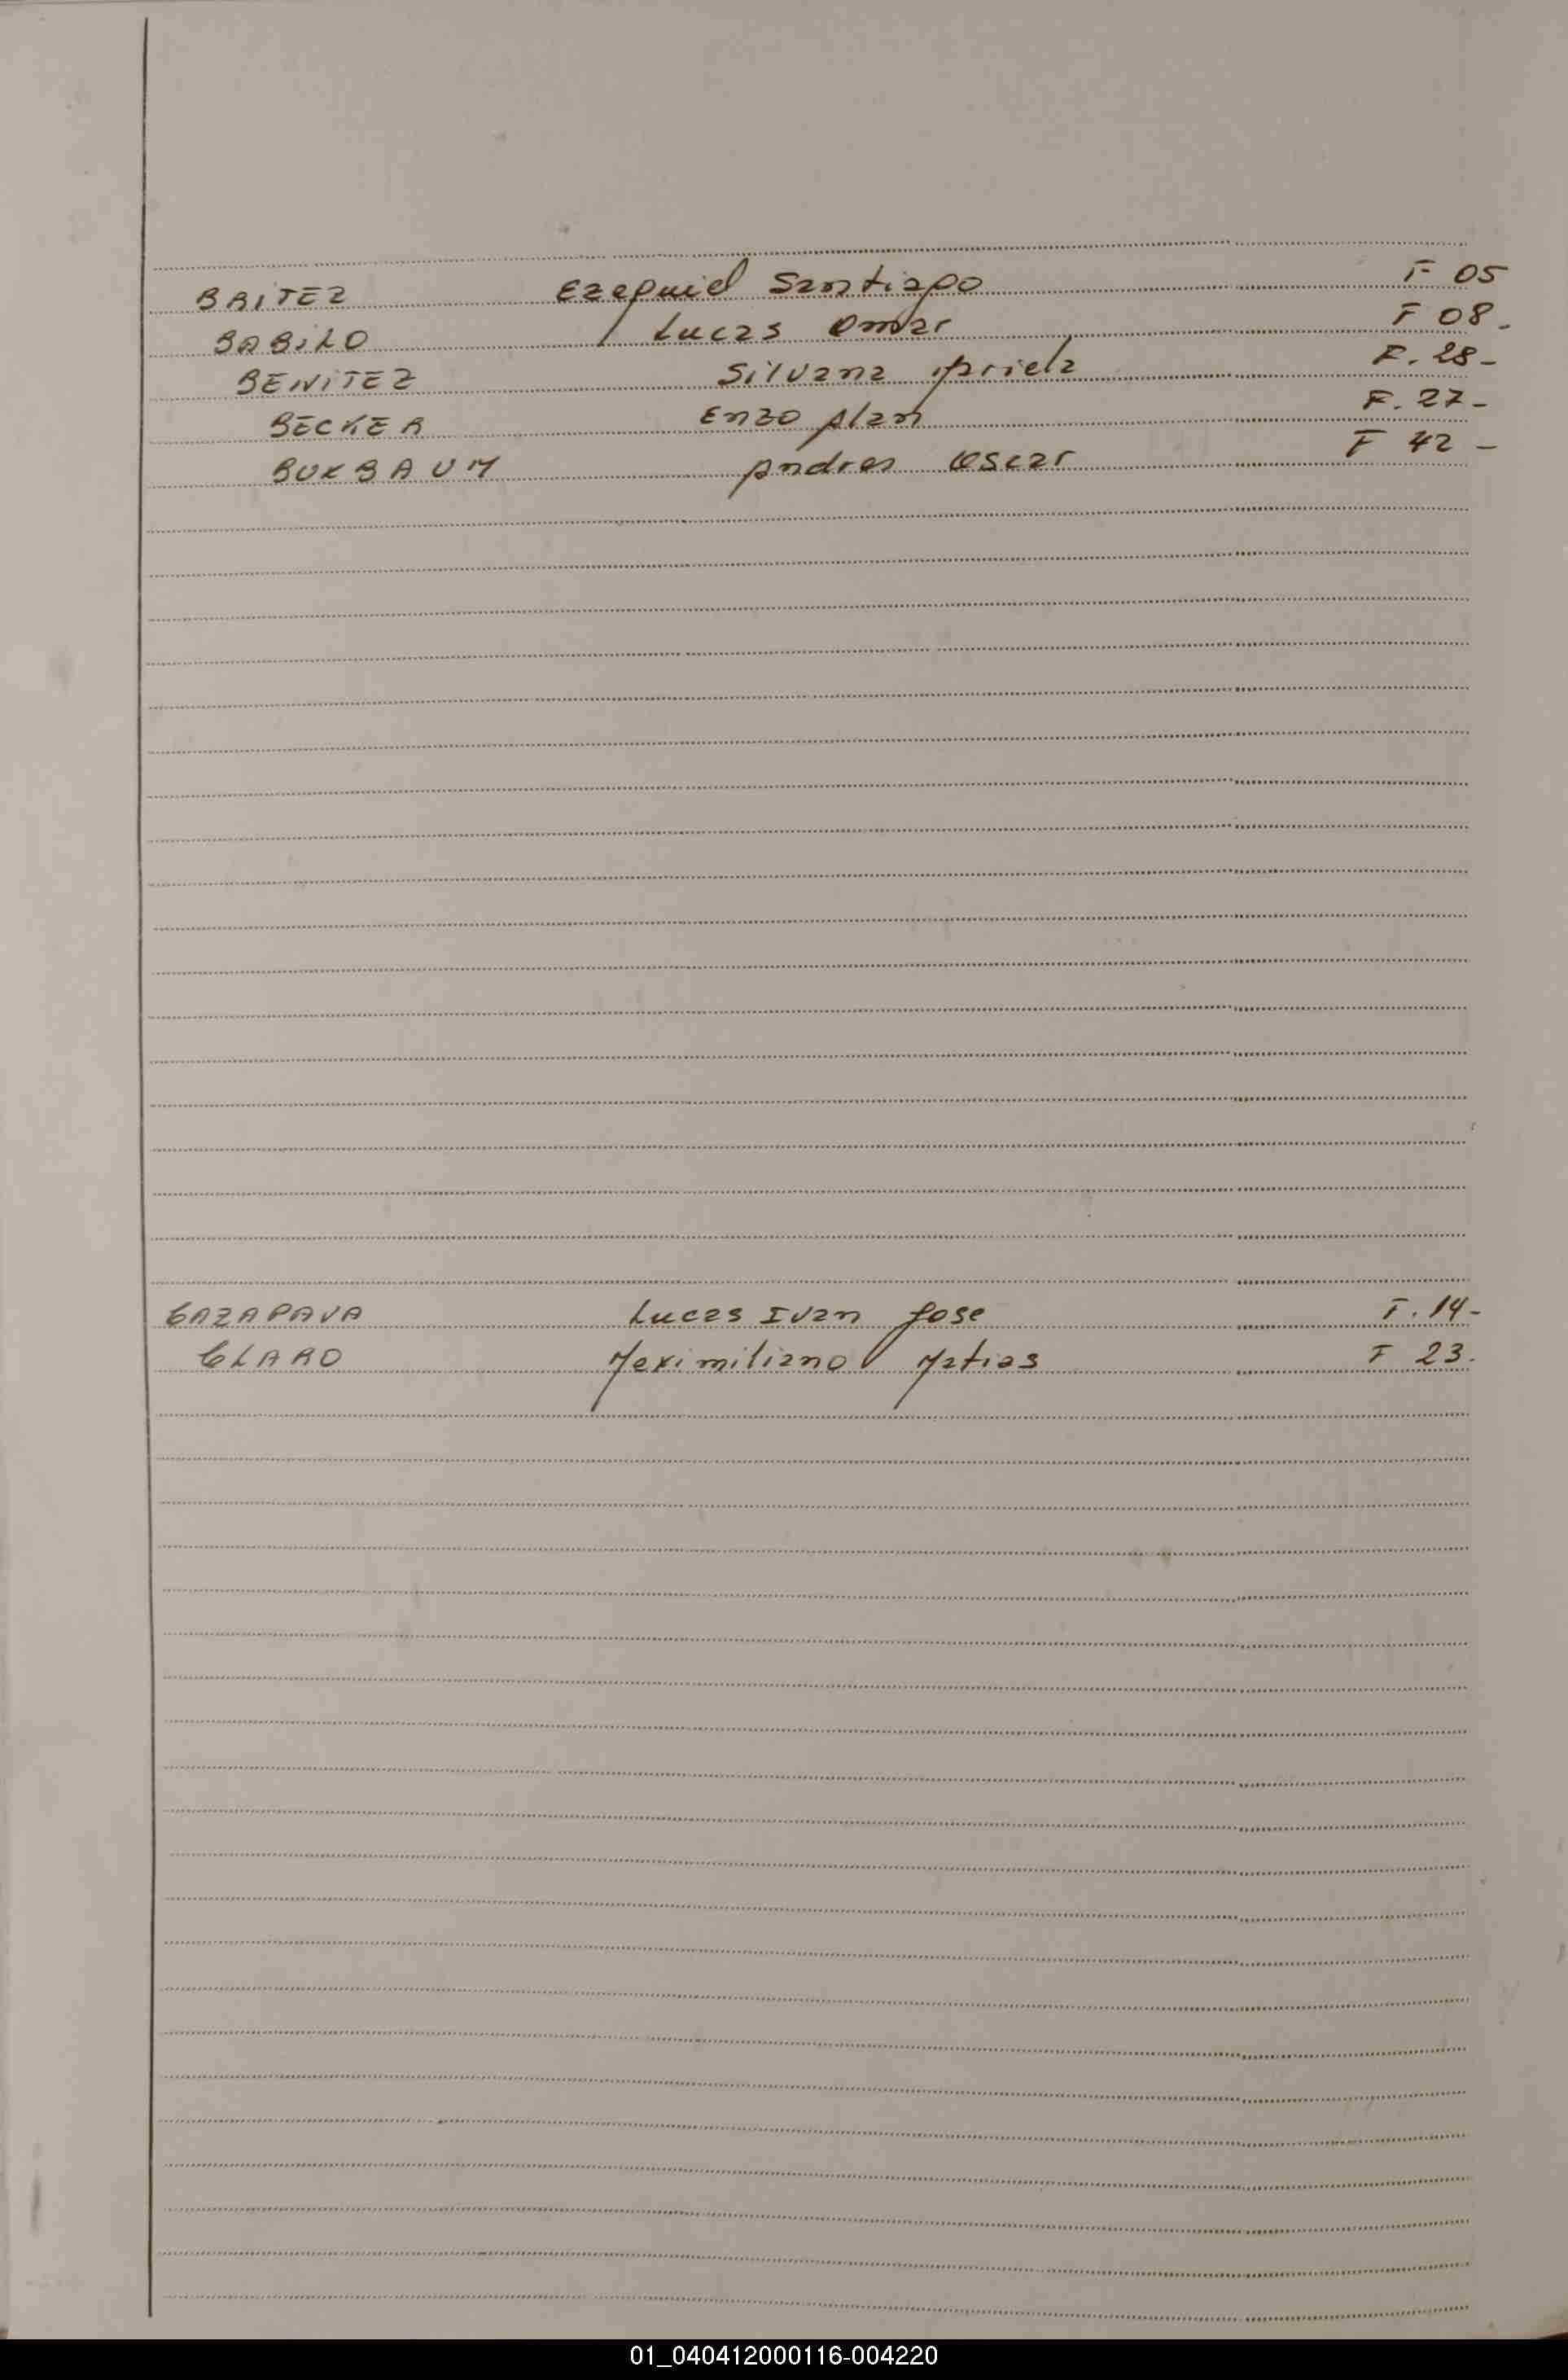 BRITEZ Ezequiel Santiago F 05
BABILO Lucas Omar F 08.
BENITEZ Silvana Ariela F. 28-
BECKER Enzo Alan F. 27-
BUKBAUM Andres Oscar F 42 -
CAZAPAVA Lucas Ivan Jose F. 14-
CLARO Maximiliano Matias F 23.
01_040412000116-004220